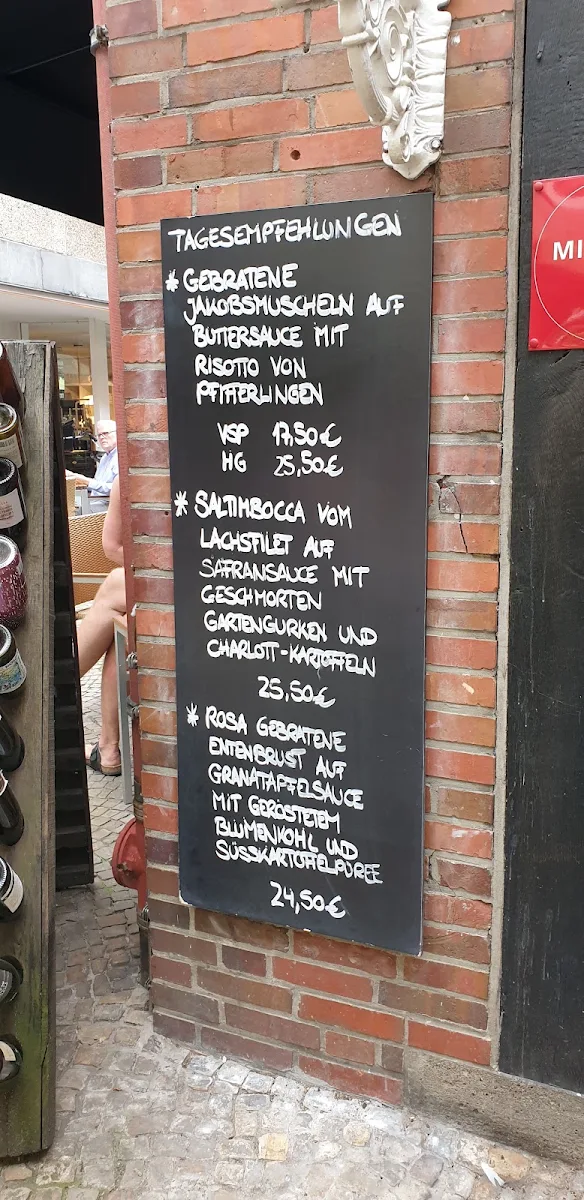 TAGESEMPFEHLUNGEN
* GEBRATENE
JAKOBSMUSCHELN AUF
BUTTERSAUCE MIT
RISOTTO VON
PFIFFERLINGEN
VSP 17,50€
HG 25,50€
* SALTIMBOCCA VOM
LACHSFILET AUF
SAFRANSAUCE MIT
GESCHMORTEN
GARTENGURKEN UND
CHARLOTT-KARTOFFELN
25,50€
* ROSA GEBRATENE
ENTENBRUST AUF
GRANATAPFELSAUCE
MIT GERÖSTETEM
BLUMENKOHL UND
SÜSSKARTOFFELPÜREE
24,50€
MI